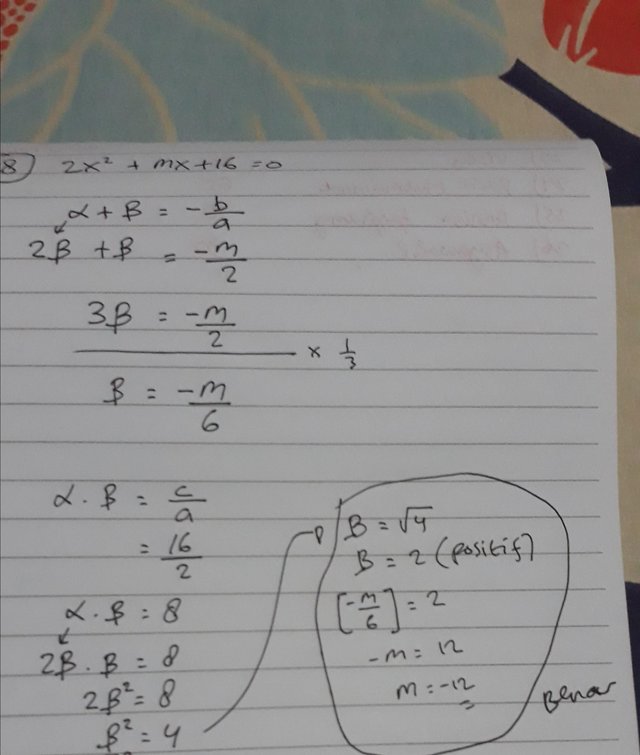 8) 2x² + mx + 16 = 0
α + β = -b/a
2β + β = -m/2
3β = -m/2
× 1/3
β = -m/6
α . β = c/a
= 16/2
α . β = 8
2β . β = 8
2β² = 8
β² = 4
β = √4
β = 2 (positif)
[-m/6] = 2
-m = 12
m = -12
Benar